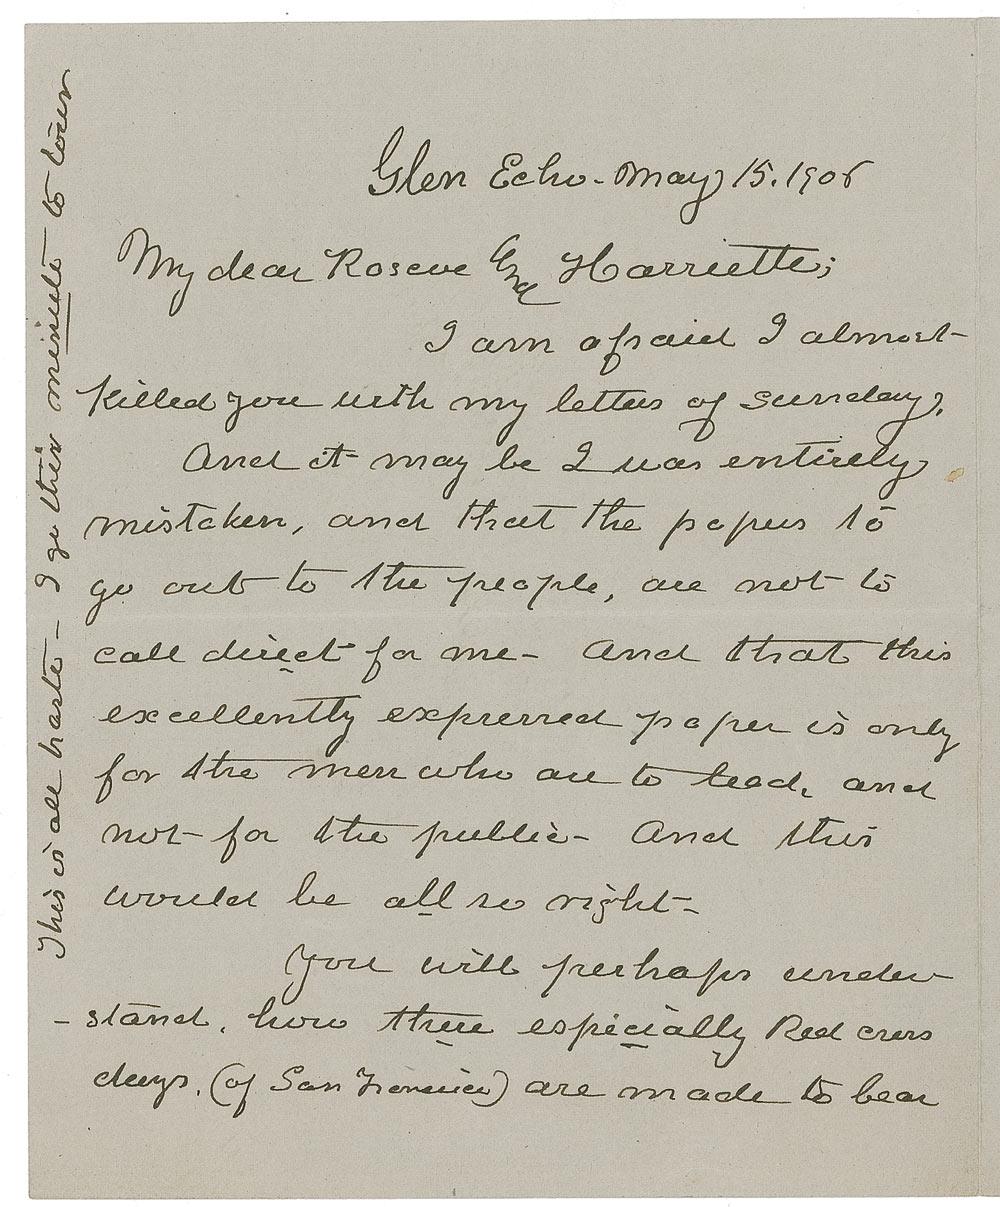 Glen Echo - May 15. 1906
My dear Roscoe and Harriette;
I am afraid I almost
killed you with my letters of Sunday,
And it may be I was entirely
mistaken, and that the papers to
go out to the people, are not to
call direct for me - And that this
excellently expressed paper is only
for the men who are to lead, and
not for the public - And this
would be all so right -
You will perhaps under
- stand, how these especially Red cross
days, (of San Francisco) are made to bear
This is all haste - I go this minute to town